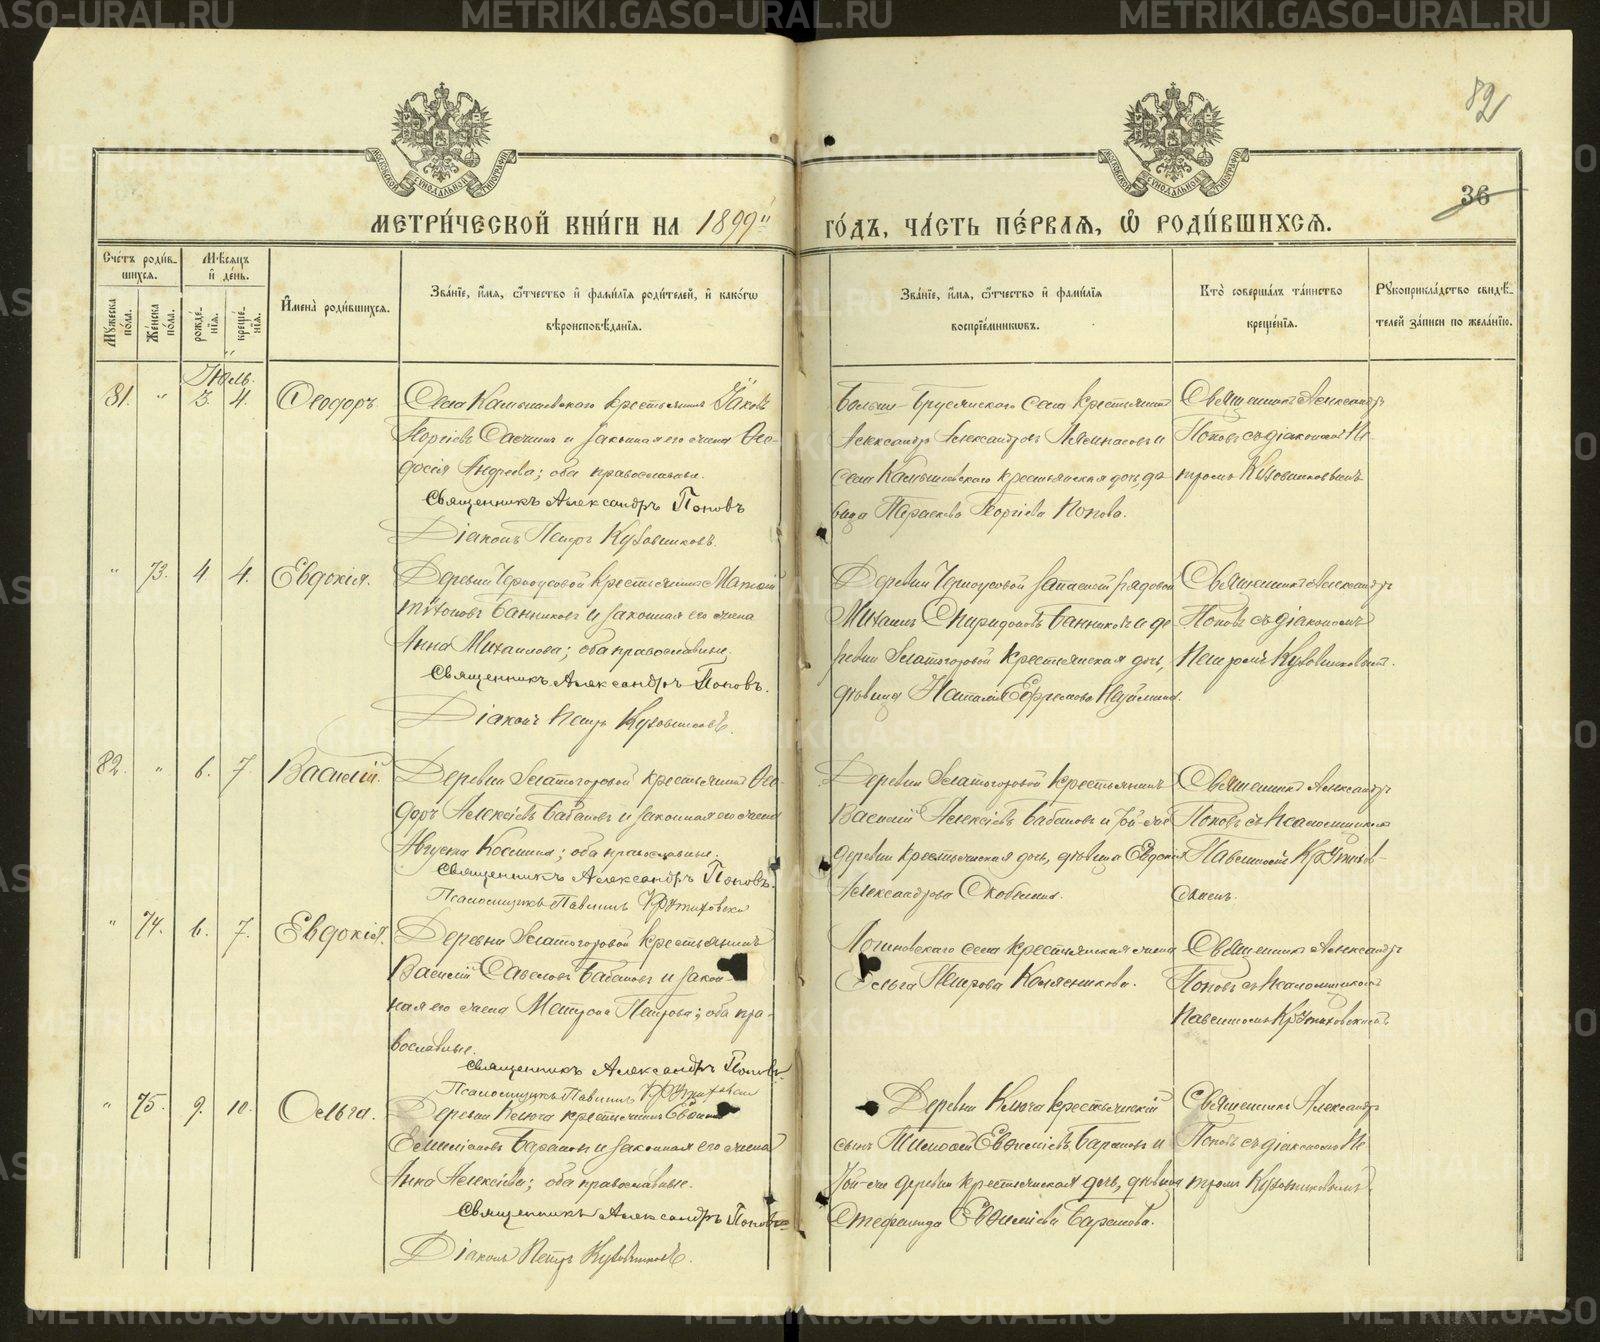 METRIKI.GASO-URAL.RU
82
36
МЕТРИ́ЧЕСКОЙ КНИ́ГИ НА 1899й
ГО́ДЪ, ЧА́СТЬ ПЕ́РВАѦ, Ѽ РОДИ́ВШИХСѦ.
Сче́тъ роди́в-
шихсѧ.
Мꙋжеска по́ла.
Же́нска по́ла.
Мѣ́сѧцъ и҆ де́нь.
рожде́-
нїѧ.
креще́-
нїѧ.
И҆мена̀ роди́вшихсѧ.
Зва́нїе, и҆́мѧ, ѻ҆́тчество и҆ фами́лїѧ роди́телей, и҆ како́гѡ
вѣроисповѣ́данїѧ.
Зва́нїе, и҆́мѧ, ѻ҆́тчество и҆ фами́лїѧ
воспрїе́мникѡвъ.
Кто̀ соверша́лъ та́инство
креще́нїѧ.
Рꙋкоприкла́дство свидѣ́-
телей за́писи по жела́нїю.
Іюль.
81. " 3. 4. Ѳеодоръ
Села Камышевского крестьянинъ Іаковъ
и законная его жена Ѳео-
досія Андреева; оба православные.
Священникъ Александръ Поповъ
Діаконъ Петръ Кузовниковъ.
Больше-Брусянского села крестьянинъ
Александръ Александровъ и
села Камышевского крестьянская дочь, дѣ-
вица Параскева Георгіева Попова.
Священникъ Александръ
Поповъ съ діакономъ Пе-
тромъ Кузовниковымъ
" 73. 4 4. Евдокія.
Деревни Черноусовой крестьянинъ
Титовъ Банниковъ и законная его жена
Анна Михаилова; оба православные.
Священникъ Александръ Поповъ.
Діаконъ Петръ Кузовниковъ.
Деревни Черноусовой запасный рядовой
Михаилъ Спиридоновъ Банниковъ и де-
ревни Златогоровой крестьянская дочь,
дѣвица Наталія Ефремова
Священникъ Александръ
Поповъ съ діакономъ
Петромъ Кузовниковымъ.
82. " 6. 7. Василій.
Деревни Златогоровой крестьянинъ Ѳео-
доръ Алексіевъ Бабановъ и законная его жена
Августа Космина; оба православные.
Священникъ Александръ Поповъ.
Псаломщикъ Павлинъ Крутиховскій
Деревни Златогоровой крестьянинъ
Василій Алексіевъ Бабановъ и той-же
деревни крестьянская дочь, дѣвица Евдокія
Александрова
Священникъ Александръ
Поповъ съ псаломщикомъ
Павлиномъ Крутихов-
скимъ.
" 74. 6. 7. Евдокія.
Деревни Златогоровой крестьянинъ
Василій Савеловъ Бабановъ и закон-
ная его жена Матрона Петрова; оба пра-
вославные.
Священникъ Александръ Поповъ.
Псаломщикъ Павлинъ Крутиховскій
Логиновского села крестьянская жена
Ольга Петрова Колясникова.
Священникъ Александръ
Поповъ съ псаломщикомъ
Павлиномъ Крутиховскимъ
" 75. 9. 10. Ольга.
Деревни Ключа крестьянинъ Евѳимій
Емиліановъ Барановъ и законная его жена
Анна Алексіева; оба православные.
Священникъ Александръ Поповъ
Діаконъ Петръ Кузовниковъ.
Деревни Ключа крестьянскій
сынъ Тимоѳей Евѳиміевъ Барановъ и
той-же деревни крестьянская дочь, дѣвица
Стефанида Евѳиміева Баранова.
Священникъ Александръ
Поповъ съ діакономъ Пе-
тромъ Кузовниковымъ.